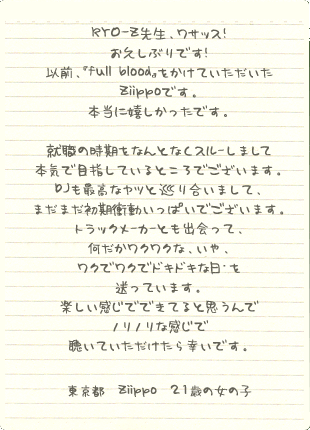 RYO-Z先生、ワサッス!
お久しぶりです!
以前、『full blood』をかけていただいた
Ziippoです。
本当に嬉しかったです。
就職の時期もなんとなくスルーしまして
本気で目指しているところでございます。
DJも最高なヤツと巡り合いまして、
まだまだ初期衝動いっぱいでございます。
トラックメーカーとも出会って、
何だかワクワクな、いや、
ワクでワクでドキドキな日々を
送っています。
楽しい感じでできてると思うんで
ノリノリな感じで
聴いていただけたら幸いです。
東京都 Ziippo 21歳の女の子